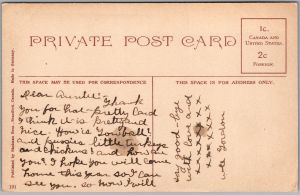 PRIVATE POST CARD
1c.
CANADA AND
UNITED STATES.
2c
FOREIGN.
THIS SPACE MAY BE USED FOR CORRESPONDENCE.
THIS SPACE IS FOR ADDRESS ONLY.
Dear Auntie: Thank
you for that pretty card
I think it is pretty and
nice. How is
and little turkeys
and chickens and
you? I hope you will come
home this year so I can
see you. so now I will
say good bye
with love and
xxxxxx
xxxxxx
101